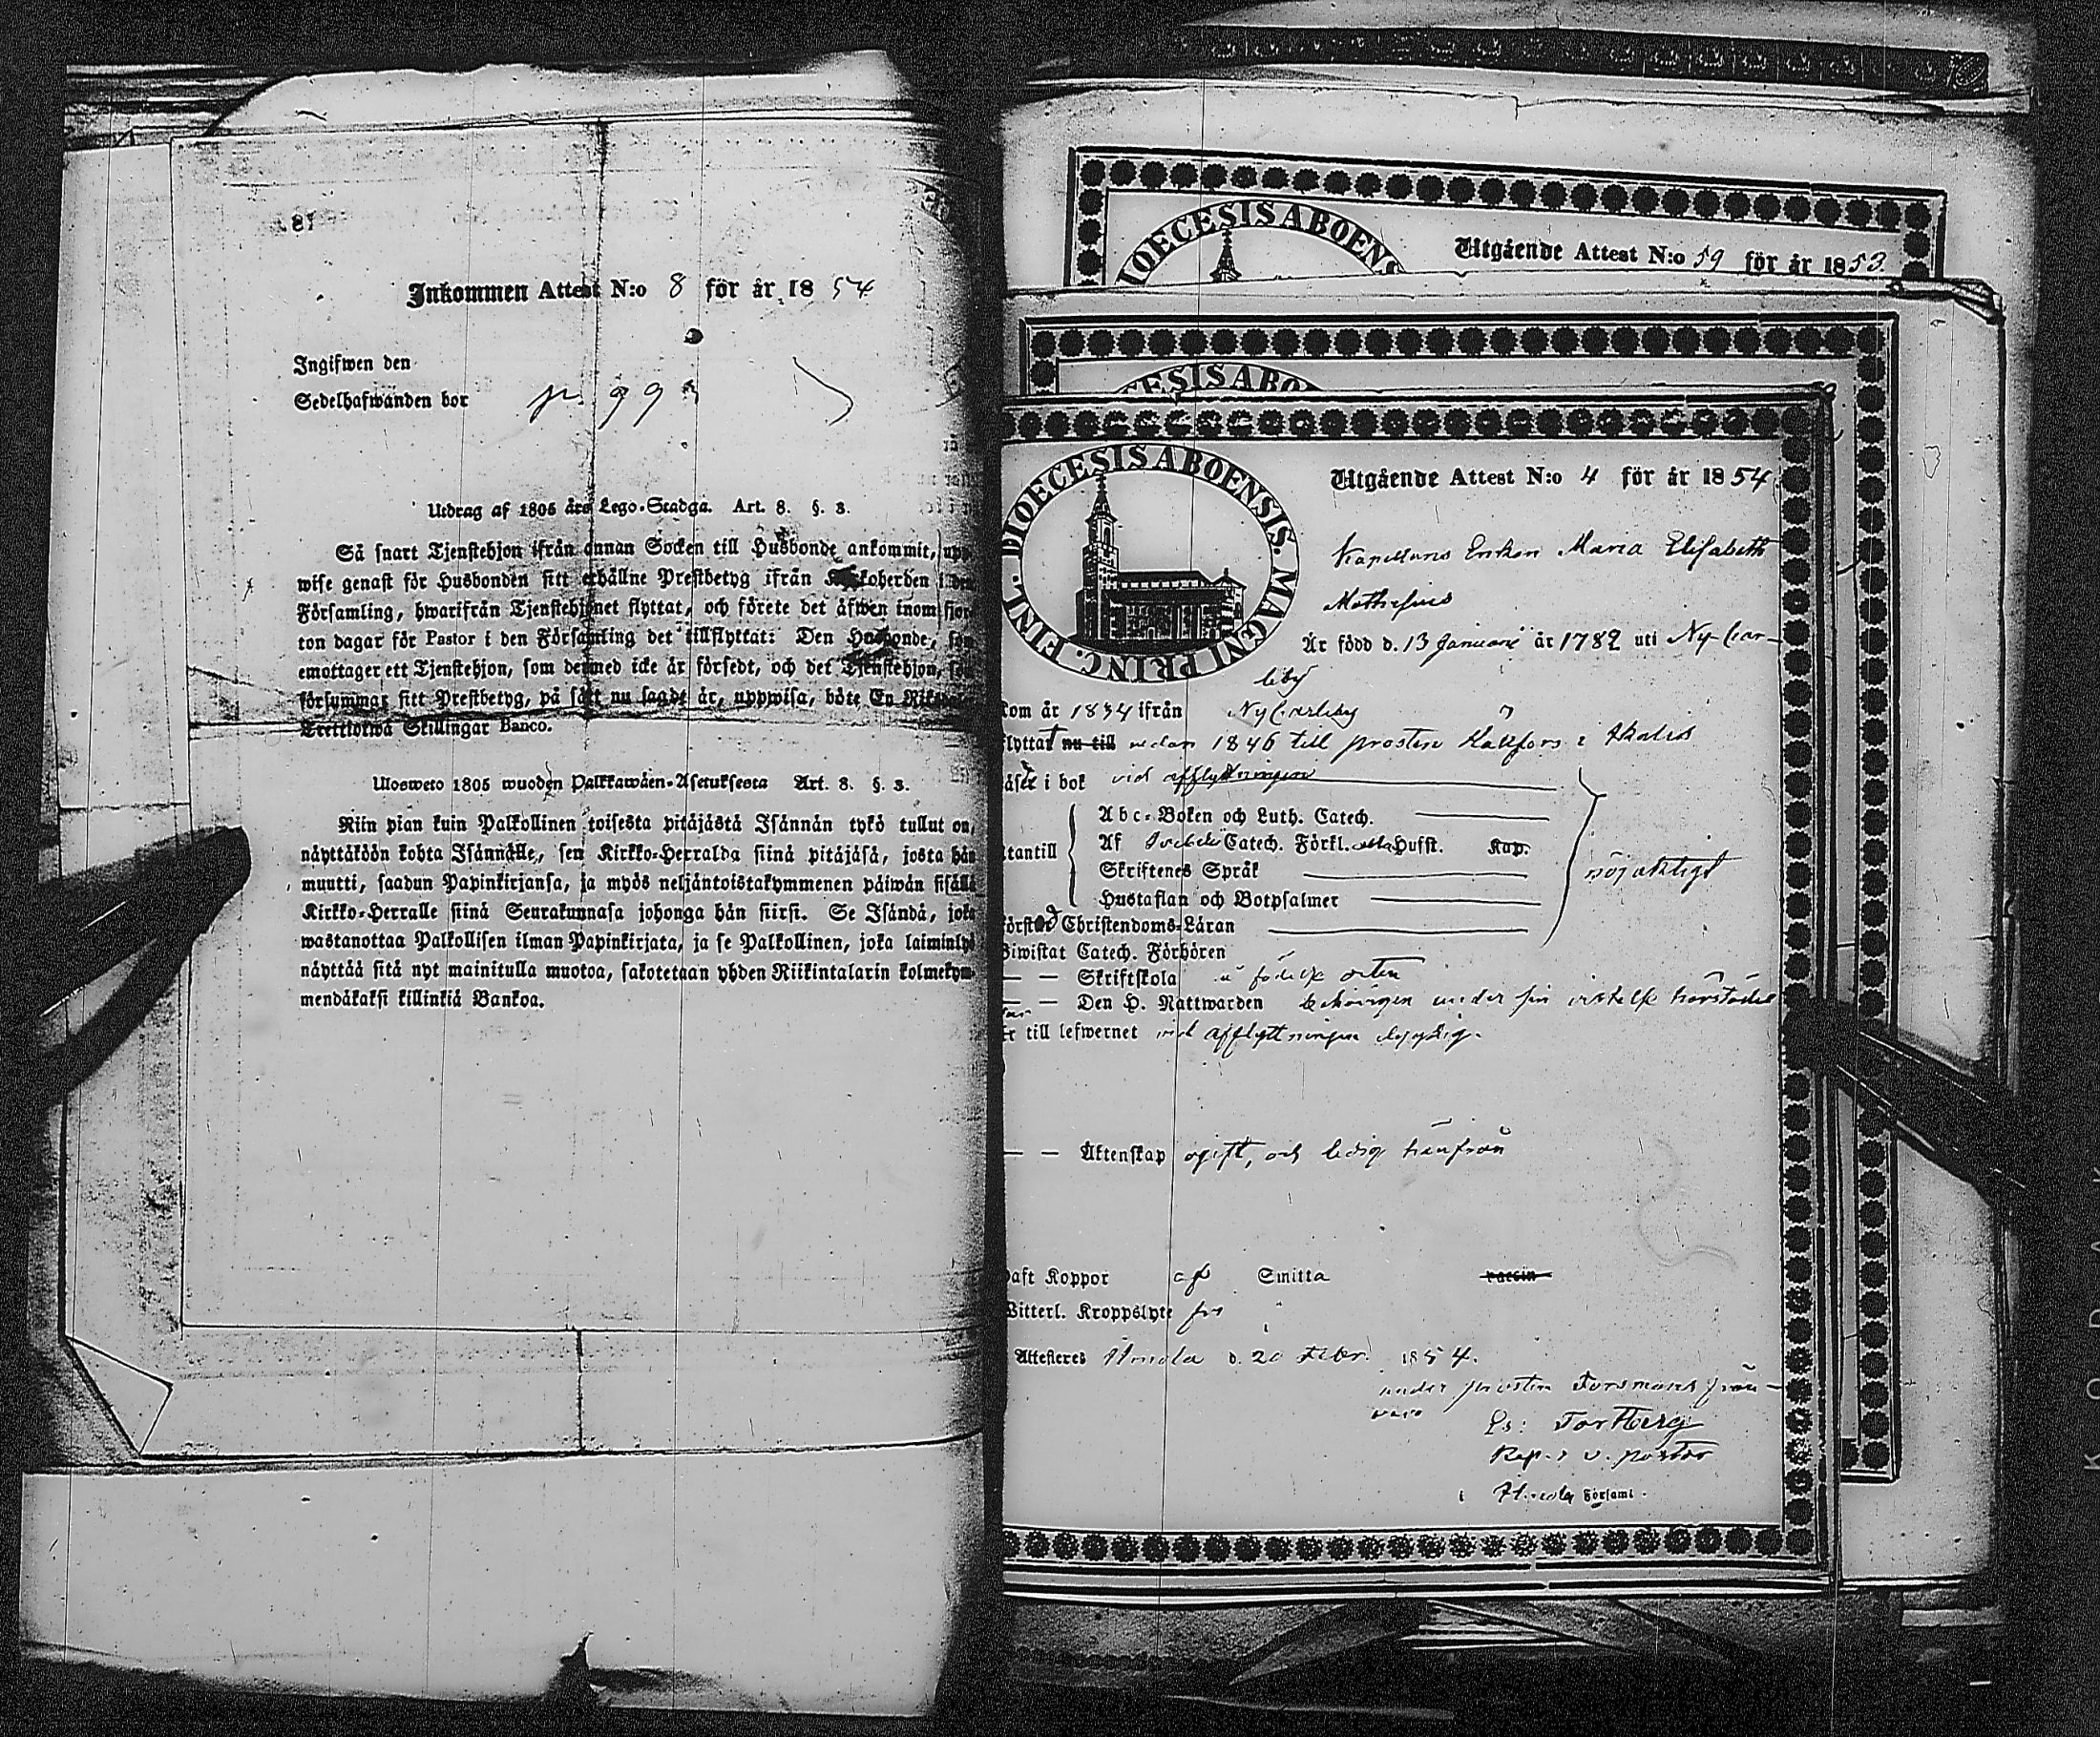 81
Inkommen Attest N:o 8 för år 18 54
Ingifwen den
Sedelhafwanden bor p. 99
Utdrag af 1805 års Lego-Stadga. Art. 8. §. 3.
Så snart Tjenstehjon ifrån annan Socken till Husbonde ankommit, upp
wise genast för Husbonden sitt erhållne Prestbetyg ifrån Kyrkoherden i den
Församling, hwarifrån Tjenstehjonet flyttat, och förete det äfwen inom fjor
ton dagar för Pastor i den Församling det tillflyttat: Den Husbonde, som
emottager ett Tjenstehjon, som dermed icke är försedt, och det Tjenstehjon,
försummar sitt Prestbetyg, på sätt nu sagdt är, uppwisa, böte En
Trettiotwå Skillingar Banco.
Ulosweto 1805 wuoden Palkkawäen-Asetuksesta Art. 8. §. 3.
Niin pian kuin Palkollinen toisesta pitäjästä Isännän tykö tullut on,
näyttäköön kohta Isännälle, sen Kirkko-Herralda siinä pitäjäsä, josta hän
muutti, saadun Papinkirjansa, ja myös neljäntoistakymmenen päiwän sisällä
Kirkko-Herralle siinä Seurakunnasa johonga hän siirsi. Se Isändä, joka
wastanottaa Palkollisen ilman Papinkirjata, ja se Palkollinen, joka laiminlyö
näyttää sitä nyt mainitulla muotoa, sakotetaan yhden Riikintalarin kolmekym-
mendäkaksi killinkiä Bankoa.
DIOECESIS ABOENS
Utgående Attest N:o 59 för år 1853.
ESIS ABO
DIOECESIS ABOENSIS. MAGNI PRINC. FINL.
Utgående Attest N:o 4 för år 1854
Kapellans Enkan Maria Elisabeth
Mathesius
Är född d. 13 Januarii år 1782 uti Ny-Car-
leby
kom år 1834 ifrån NyCarleby
flyttat nu till redan 1846 till prosten i Ikalis
i bok vid afflyttningen
Abc-Boken och Luth. Catech.
Af Catech. Förkl. Hufst. Kap.
Skriftenes Språk
Hustaflan och Botpsalmer
nöjaktigt
Christendoms-Läran
Biwistat Catech. Förhören
— — Skriftskola å födelse orten
— — Den H. Nattwarden behörigen under sin vistelse härstädes
till lefwernet vid afflyttningen
— — Äktenskap ogift, och ledig härifrån
haft Koppor af Smitta vaccin
Witterl. Kroppslyte fri
Attesteres d. 20 Febr. 1854.
under prosten Forsmans från-
varo
Kap. v. pastor
i Församl.